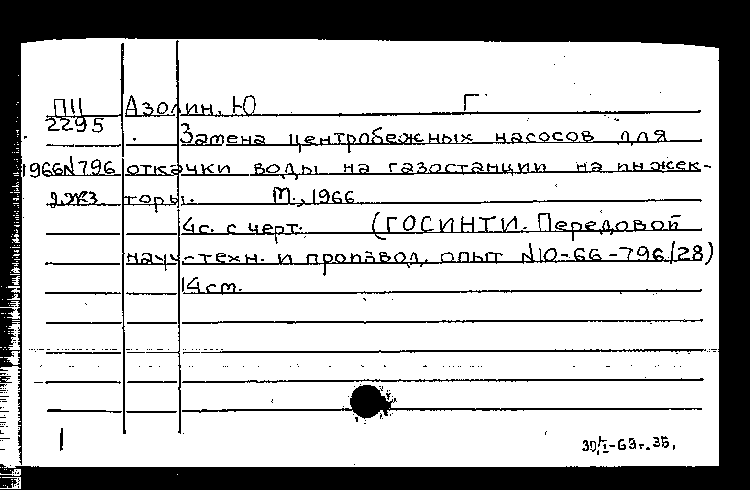 ПЦ Азолин, Ю Г
2295
Замена центробежных насосов для
1966N796 откачки воды на газостанции на инжек-
2 экз. торы. М., 1966
4с. с черт. (ГОСИНТИ. Передовой
науч-техн. и производ. опыт N10-66-796/28)
14см.
30/I-69г. 35,